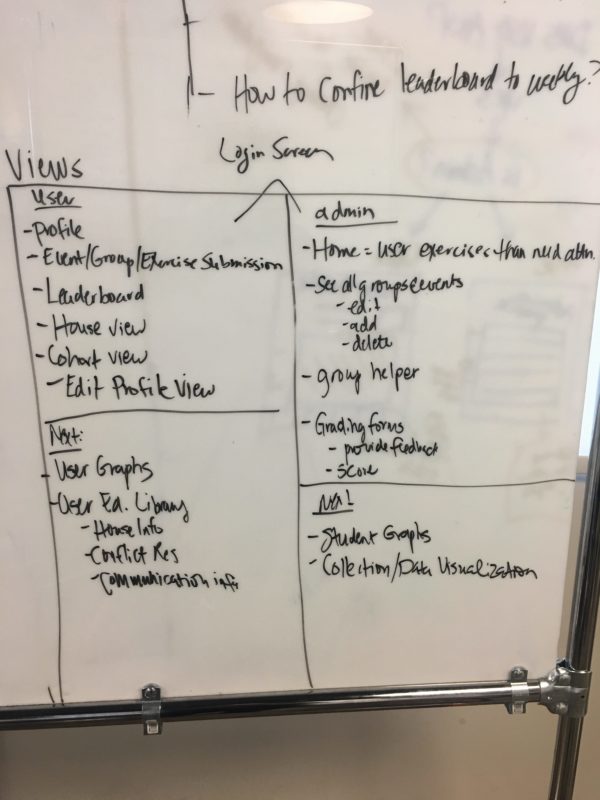 - How to confine leaderboard to weekly?
Login Screen
Views
User
- Profile
- Event/Group/Exercise Submission
- Leaderboard
- House view
- Cohort view
- Edit Profile View
Next:
- User Graphs
- User Ed. Library
- House Info
- Conflict Res
- Communication info
admin
- Home = user exercises than need attn.
- See all groups & events
- edit
- add
- delete
- group helper
- Grading forms
- provide feedback
- score
Next
- Student Graphs
- Collection/Data Visualization